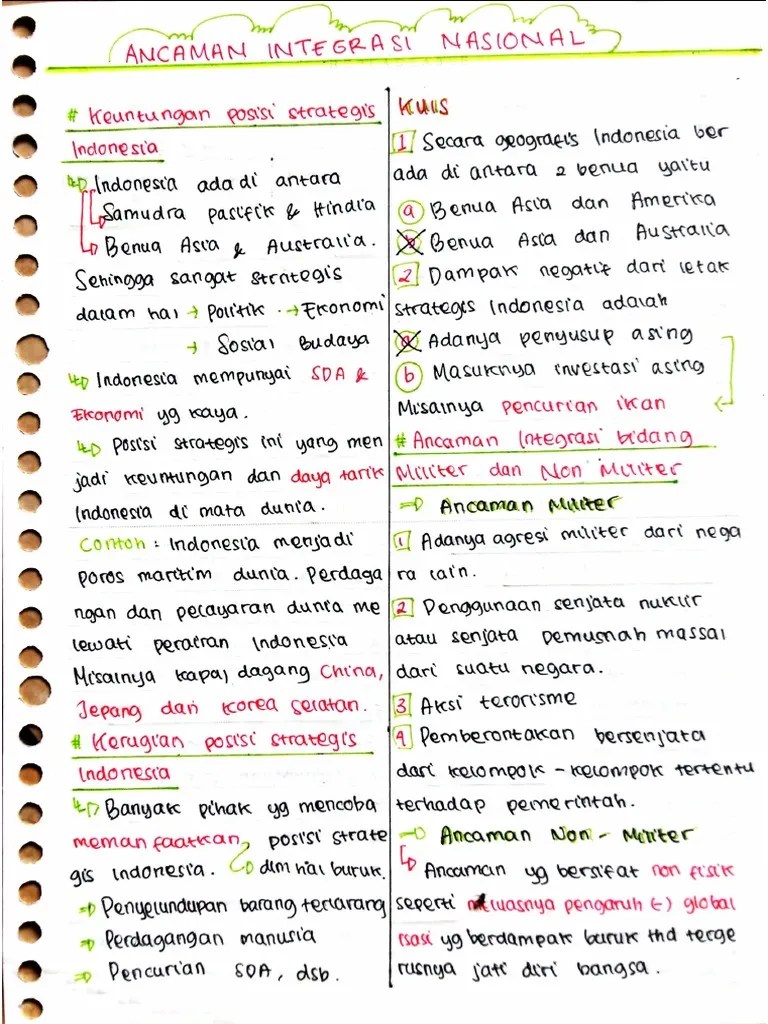 ANCAMAN INTEGRASI NASIONAL
# Keuntungan posisi strategis
Indonesia
Indonesia ada di antara
Samudra pasifik & Hindia
Benua Asia & Australia.
Sehingga sangat strategis
dalam hal → politik → Ekonomi
→ Sosial Budaya
Indonesia mempunyai SDA &
Ekonomi yg kaya.
Posisi strategis ini yang men
jadi keuntungan dan daya tarik
Indonesia di mata dunia.
Contoh : Indonesia menjadi
poros maritim dunia. Perdaga
ngan dan pelayaran dunia me
lewati perairan Indonesia
Misalnya kapal dagang China,
Jepang dan Korea selatan.
# Kerugian posisi strategis
Indonesia
Banyak pihak yg mencoba
memanfaatkan posisi strate
gis Indonesia. dlm hal buruk.
⇒ Penyelundupan barang terlarang
⇒ Perdagangan manusia
⇒ Pencurian SDA, dsb.
KUIS
1 Secara geografis Indonesia ber
ada di antara 2 benua yaitu
a Benua Asia dan Amerika
b Benua Asia dan Australia
2 Dampak negatif dari letak
strategis Indonesia adalah
a Adanya penyusup asing
b Masuknya investasi asing
Misalnya pencurian ikan
# Ancaman Integrasi bidang
Militer dan Non Militer
⇒ Ancaman Militer
1 Adanya agresi militer dari nega
ra lain.
2 Penggunaan senjata nuklir
atau senjata pemusnah massal
dari suatu negara.
3 Aksi terorisme
4 Pemberontakan bersenjata
dari kelompok - kelompok tertentu
terhadap pemerintah.
⇒ Ancaman Non - Militer
Ancaman yg bersifat non fisik
seperti meluasnya pengaruh (-) global
isasi yg berdampak buruk thd terge
rusnya jati diri bangsa.